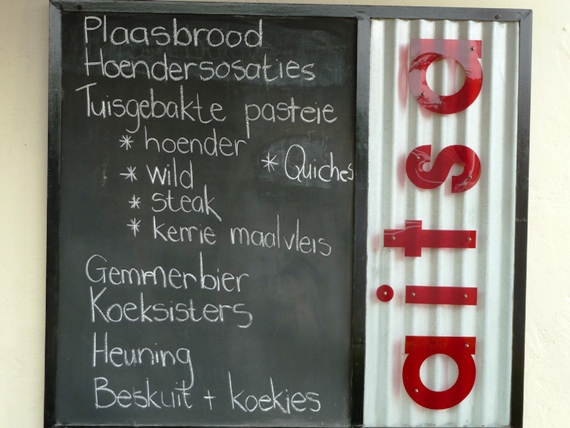 Plaasbrood
Hoendersosaties
Tuisgebakte pasteie
* hoender
* Quiches
* wild
* steak
* kerrie maalvleis
Gemmerbier
Koeksisters
Heuning
Beskuit + koekies
aitsa